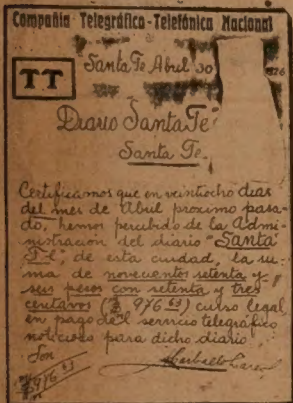 Compañia Telegráfica-Telefónica Nacional
TT
Santa Fe Abril 30
Diario Santa Fe"
Santa Fe.
Certificamos que en veintiocho dias
del mes de Abril próximo pasa-
do, hemos percibido de la Admi-
nistración del diario "Santa
Fe", de esta ciudad, la su-
ma de novecientos setenta y
seis pesos con setenta y tres
centavos ($ 976 63) curso legal,
en pago del servicio telegráfico
noticioso para dicho diario
Son
$ 976 63